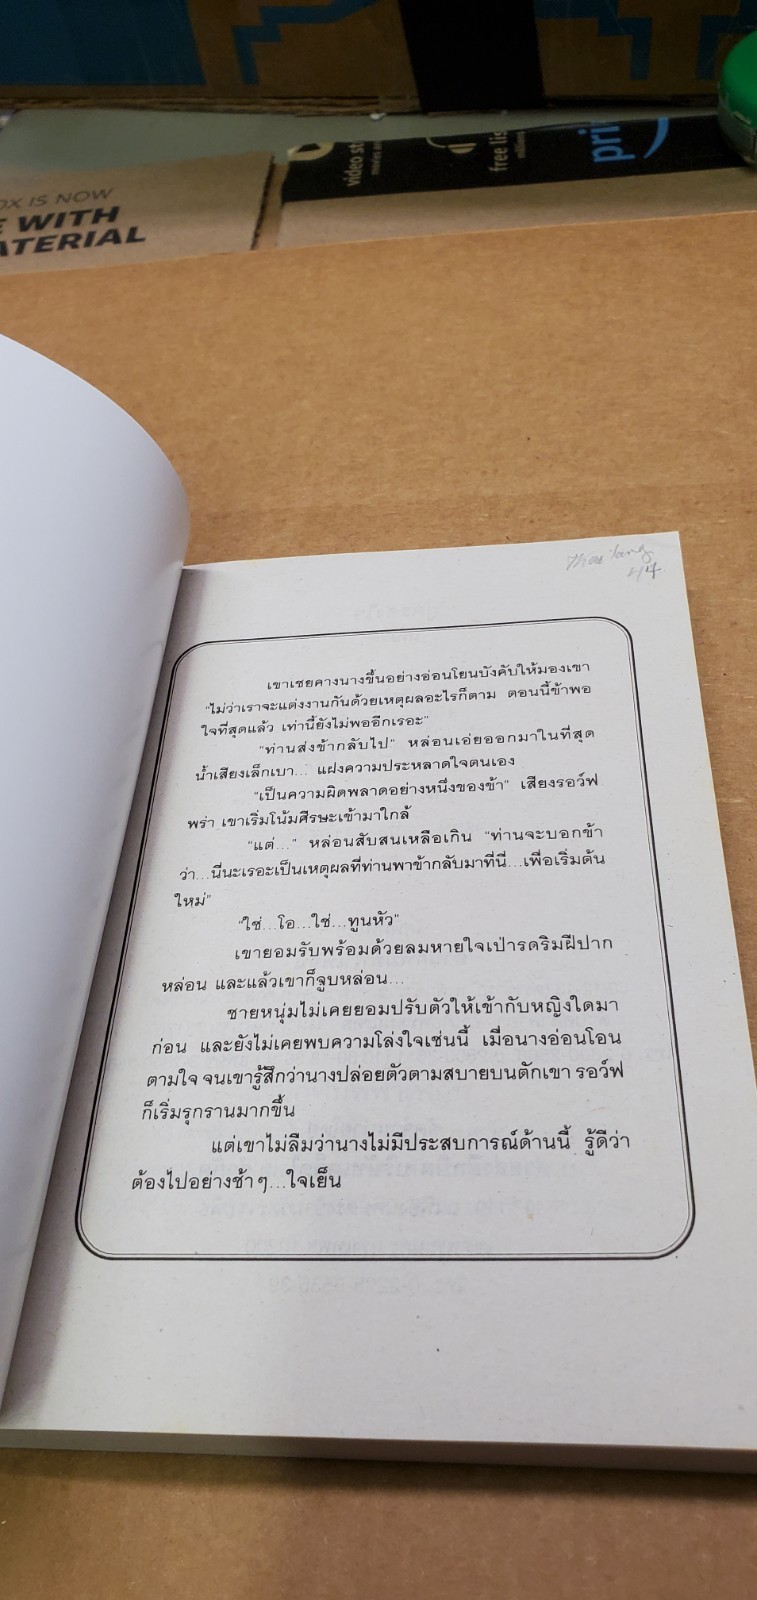 OX IS NOW
E WITH
ATERIAL
video st
free lis
pri
Thai lang
เขาเชยคางนางขึ้นอย่างอ่อนโยนบังคับให้มองเขา
"ไม่ว่าเราจะแต่งงานกันด้วยเหตุผลอะไรก็ตาม ตอนนี้ข้าพอ
ใจที่สุดแล้ว เท่านี้ยังไม่พออีกเรอะ"
"ท่านส่งข้ากลับไป" หล่อนเอ่ยออกมาในที่สุด
น้ำเสียงเล็กเบา... แฝงความประหลาดใจตนเอง
"เป็นความผิดพลาดอย่างหนึ่งของข้า" เสียงรอว์ฟ
พร่า เขาเริ่มโน้มศีรษะเข้ามาใกล้
"แต่..." หล่อนสับสนเหลือเกิน "ท่านจะบอกข้า
ว่า...นี่นะเรอะเป็นเหตุผลที่ท่านพาข้ากลับมาที่นี่...เพื่อเริ่มต้น
ใหม่"
"ใช่...โอ...ใช่...ทูนหัว"
เขายอมรับพร้อมด้วยลมหายใจเป่ารดริมฝีปาก
หล่อน และแล้วเขาก็จูบหล่อน...
ชายหนุ่มไม่เคยยอมปรับตัวให้เข้ากับหญิงใดมา
ก่อน และยังไม่เคยพบความโล่งใจเช่นนี้ เมื่อนางอ่อนโอน
ตามใจ จนเขารู้สึกว่านางปล่อยตัวตามสบายบนตักเขา รอว์ฟ
ก็เริ่มรุกรานมากขึ้น
แต่เขาไม่ลืมว่านางไม่มีประสบการณ์ด้านนี้ รู้ดีว่า
ต้องไปอย่างช้าๆ...ใจเย็น